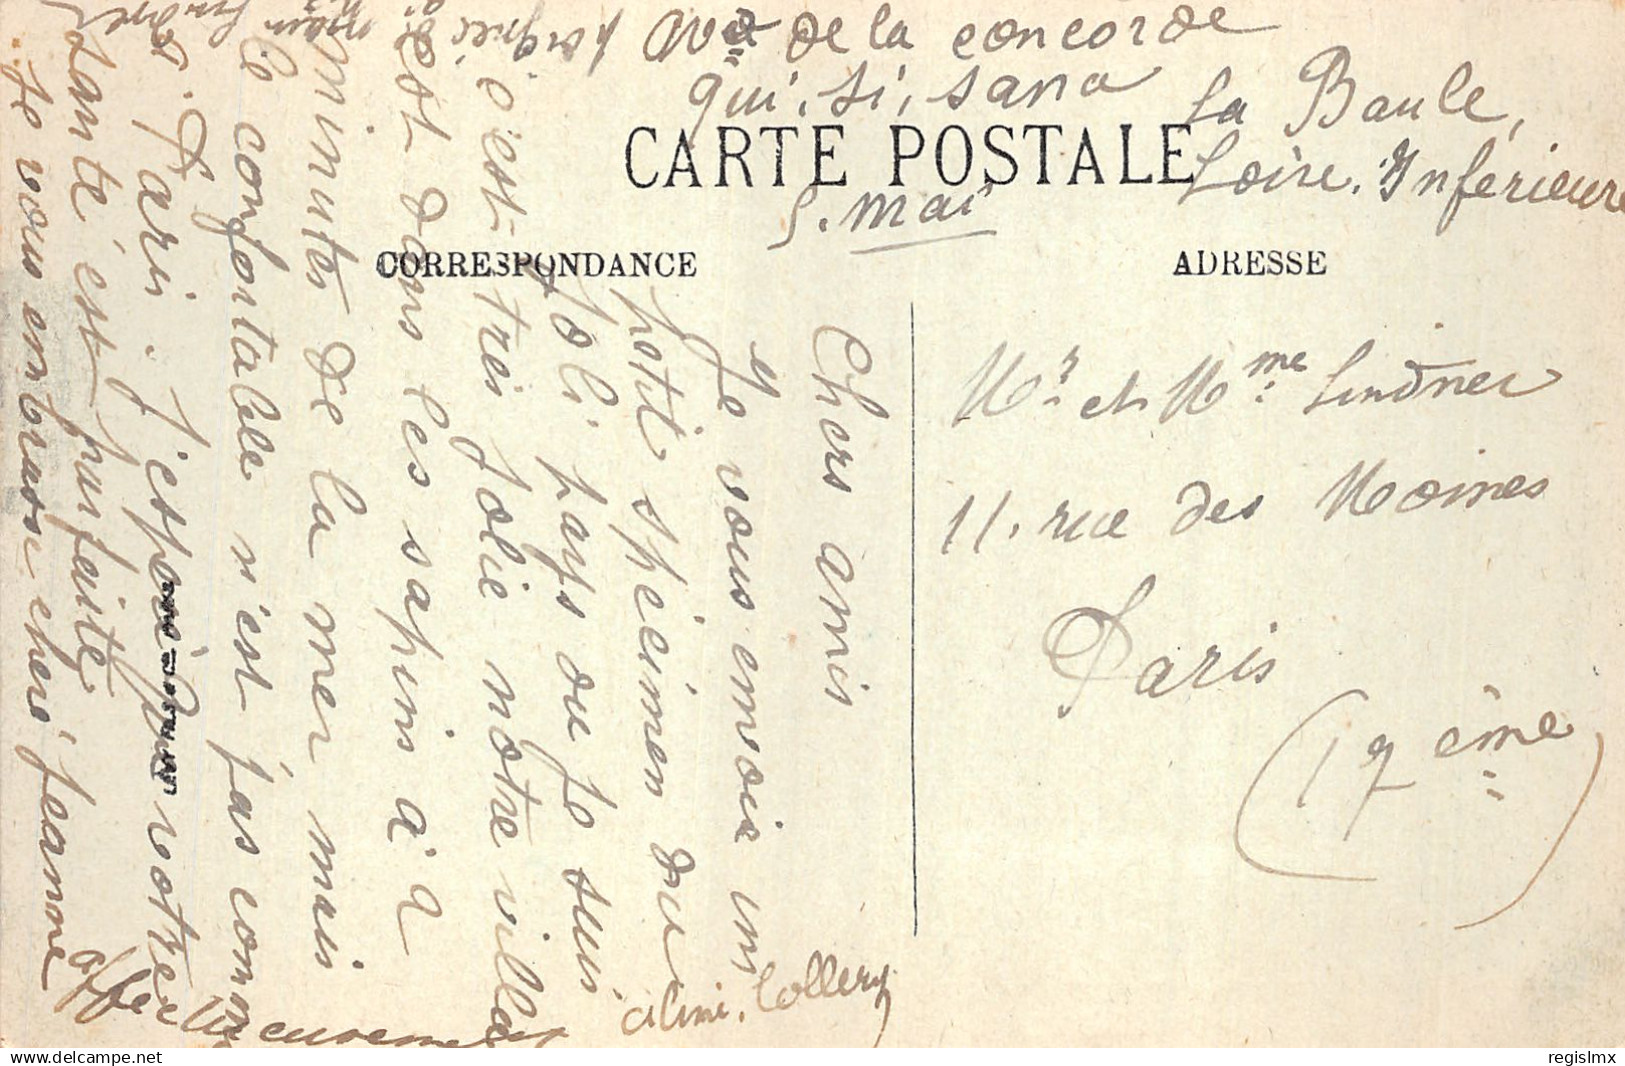 Ave de la concorde
qui, si, sana
La Baule,
Loire. Inférieure
CARTE POSTALE
5. mai
CORRESPONDANCE
ADRESSE
Chers amis
Je vous envoie un
petit spécimen du
Joli pays ou Je suis
c'est très Jolie notre villa
est dans les sapins à 2
minutes de la mer mais
le confortable n'est pas comme
Paris. J'espère que votre
santé est parfaite
Je vous embrasse cheré Jeanne
affectueusement
Mr. et Mme. Lindner
11. rue des Moines
Paris
(17 ème)
regislmx